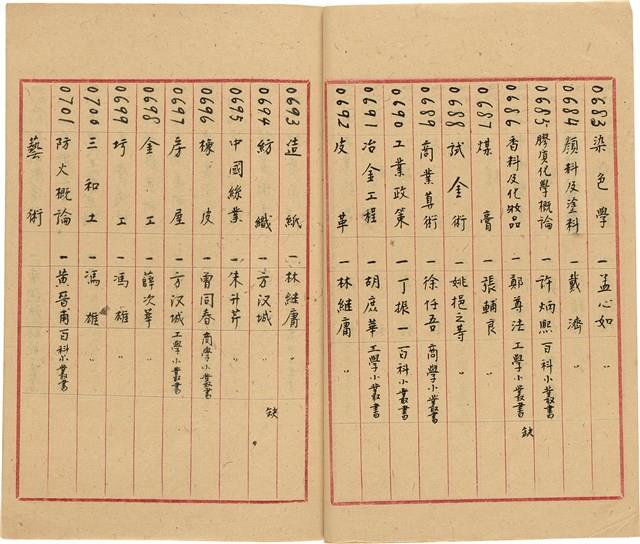 0683 染色學 一 孟心如
0684 顏料及塗料 一 戴濟 〃
0685 膠質化學概論 一 許炳熙 百科小叢書
0686 香料及化妝品 一 鄭尊法 工學小叢書 缺
0687 煤膏 一 張輔良 〃
0688 試金術 一 姚挹之等 〃
0689 商業尊術 一 徐任吾 商學小叢書
0690 工業政策 一 丁振一 百科小叢書
0691 冶金工程 一 胡庶華 工學小叢書
0692 皮革 一 林繼庸 〃
0693 造紙 一 林繼庸 〃 缺
0694 紡織 一 方汉城 〃
0695 中國絲業 一 朱升芹 〃
0696 棟皮 一 曾同春 商學小叢書
0697 房屋 一 方汉城 工學小叢書
0698 金工 一 薛次莘 〃
0699 圬工 一 馮雄 〃
0700 三和土 一 馮雄 〃
0701 防火概論 一 黄晉甫 百科小叢書
藝術